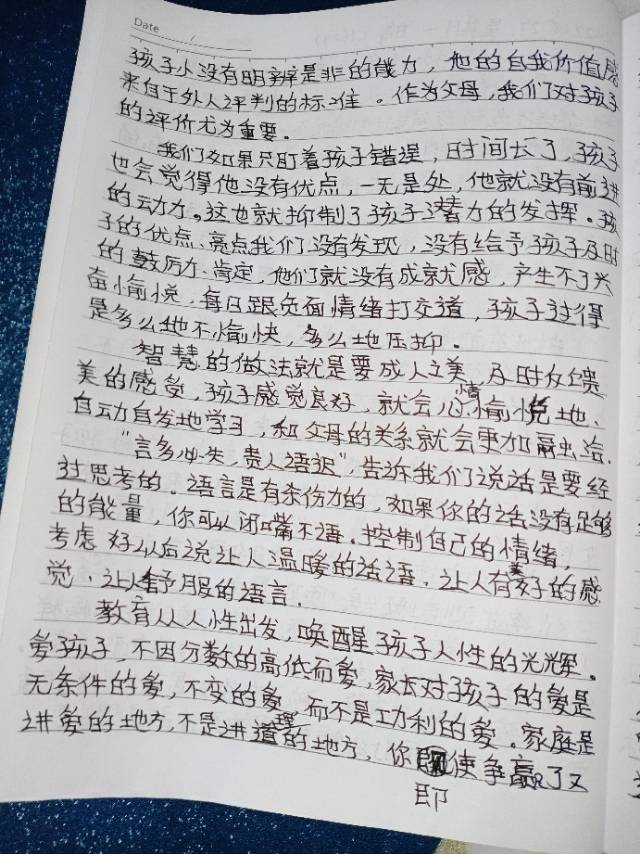 Date
孩子小没有明辨是非的能力，他的自我价值感
来自于外人评判的标准。作为父母，我们对孩子
的评价尤为重要。
我们如果只盯着孩子错误，时间长了，孩子
也会觉得他没有优点，一无是处，他就没有前进
的动力。这也就抑制了孩子潜力的发挥。孩
子的优点、亮点我们没有发现，没有给予孩子及时
的鼓励、肯定，他们就没有成就感，产生不了兴
奋愉悦，每日跟负面情绪打交道，孩子过得
是多么地不愉快，多么地压抑。
智慧的做法就是要成人之美，及时反馈
美的感受，孩子感觉良好，就会心情愉悦地、
自动自发地学习，和父母的关系就会更加融洽。
“言多必失，贵人语迟”，告诉我们说话是要经
过思考的。语言是有杀伤力的，如果你的话没有足够
的能量，你可以闭嘴不语。控制自己的情绪，
考虑好以后说让人温暖的话语，让人有美好的感
觉，让人舒服的语言。
教育从人性出发，唤醒孩子人性的光辉。
爱孩子，不因分数的高低而爱，家长对孩子的爱是
无条件的爱，不变的爱，而不是功利的爱。家庭是
讲爱的地方，不是讲道理的地方，你即使争赢了又